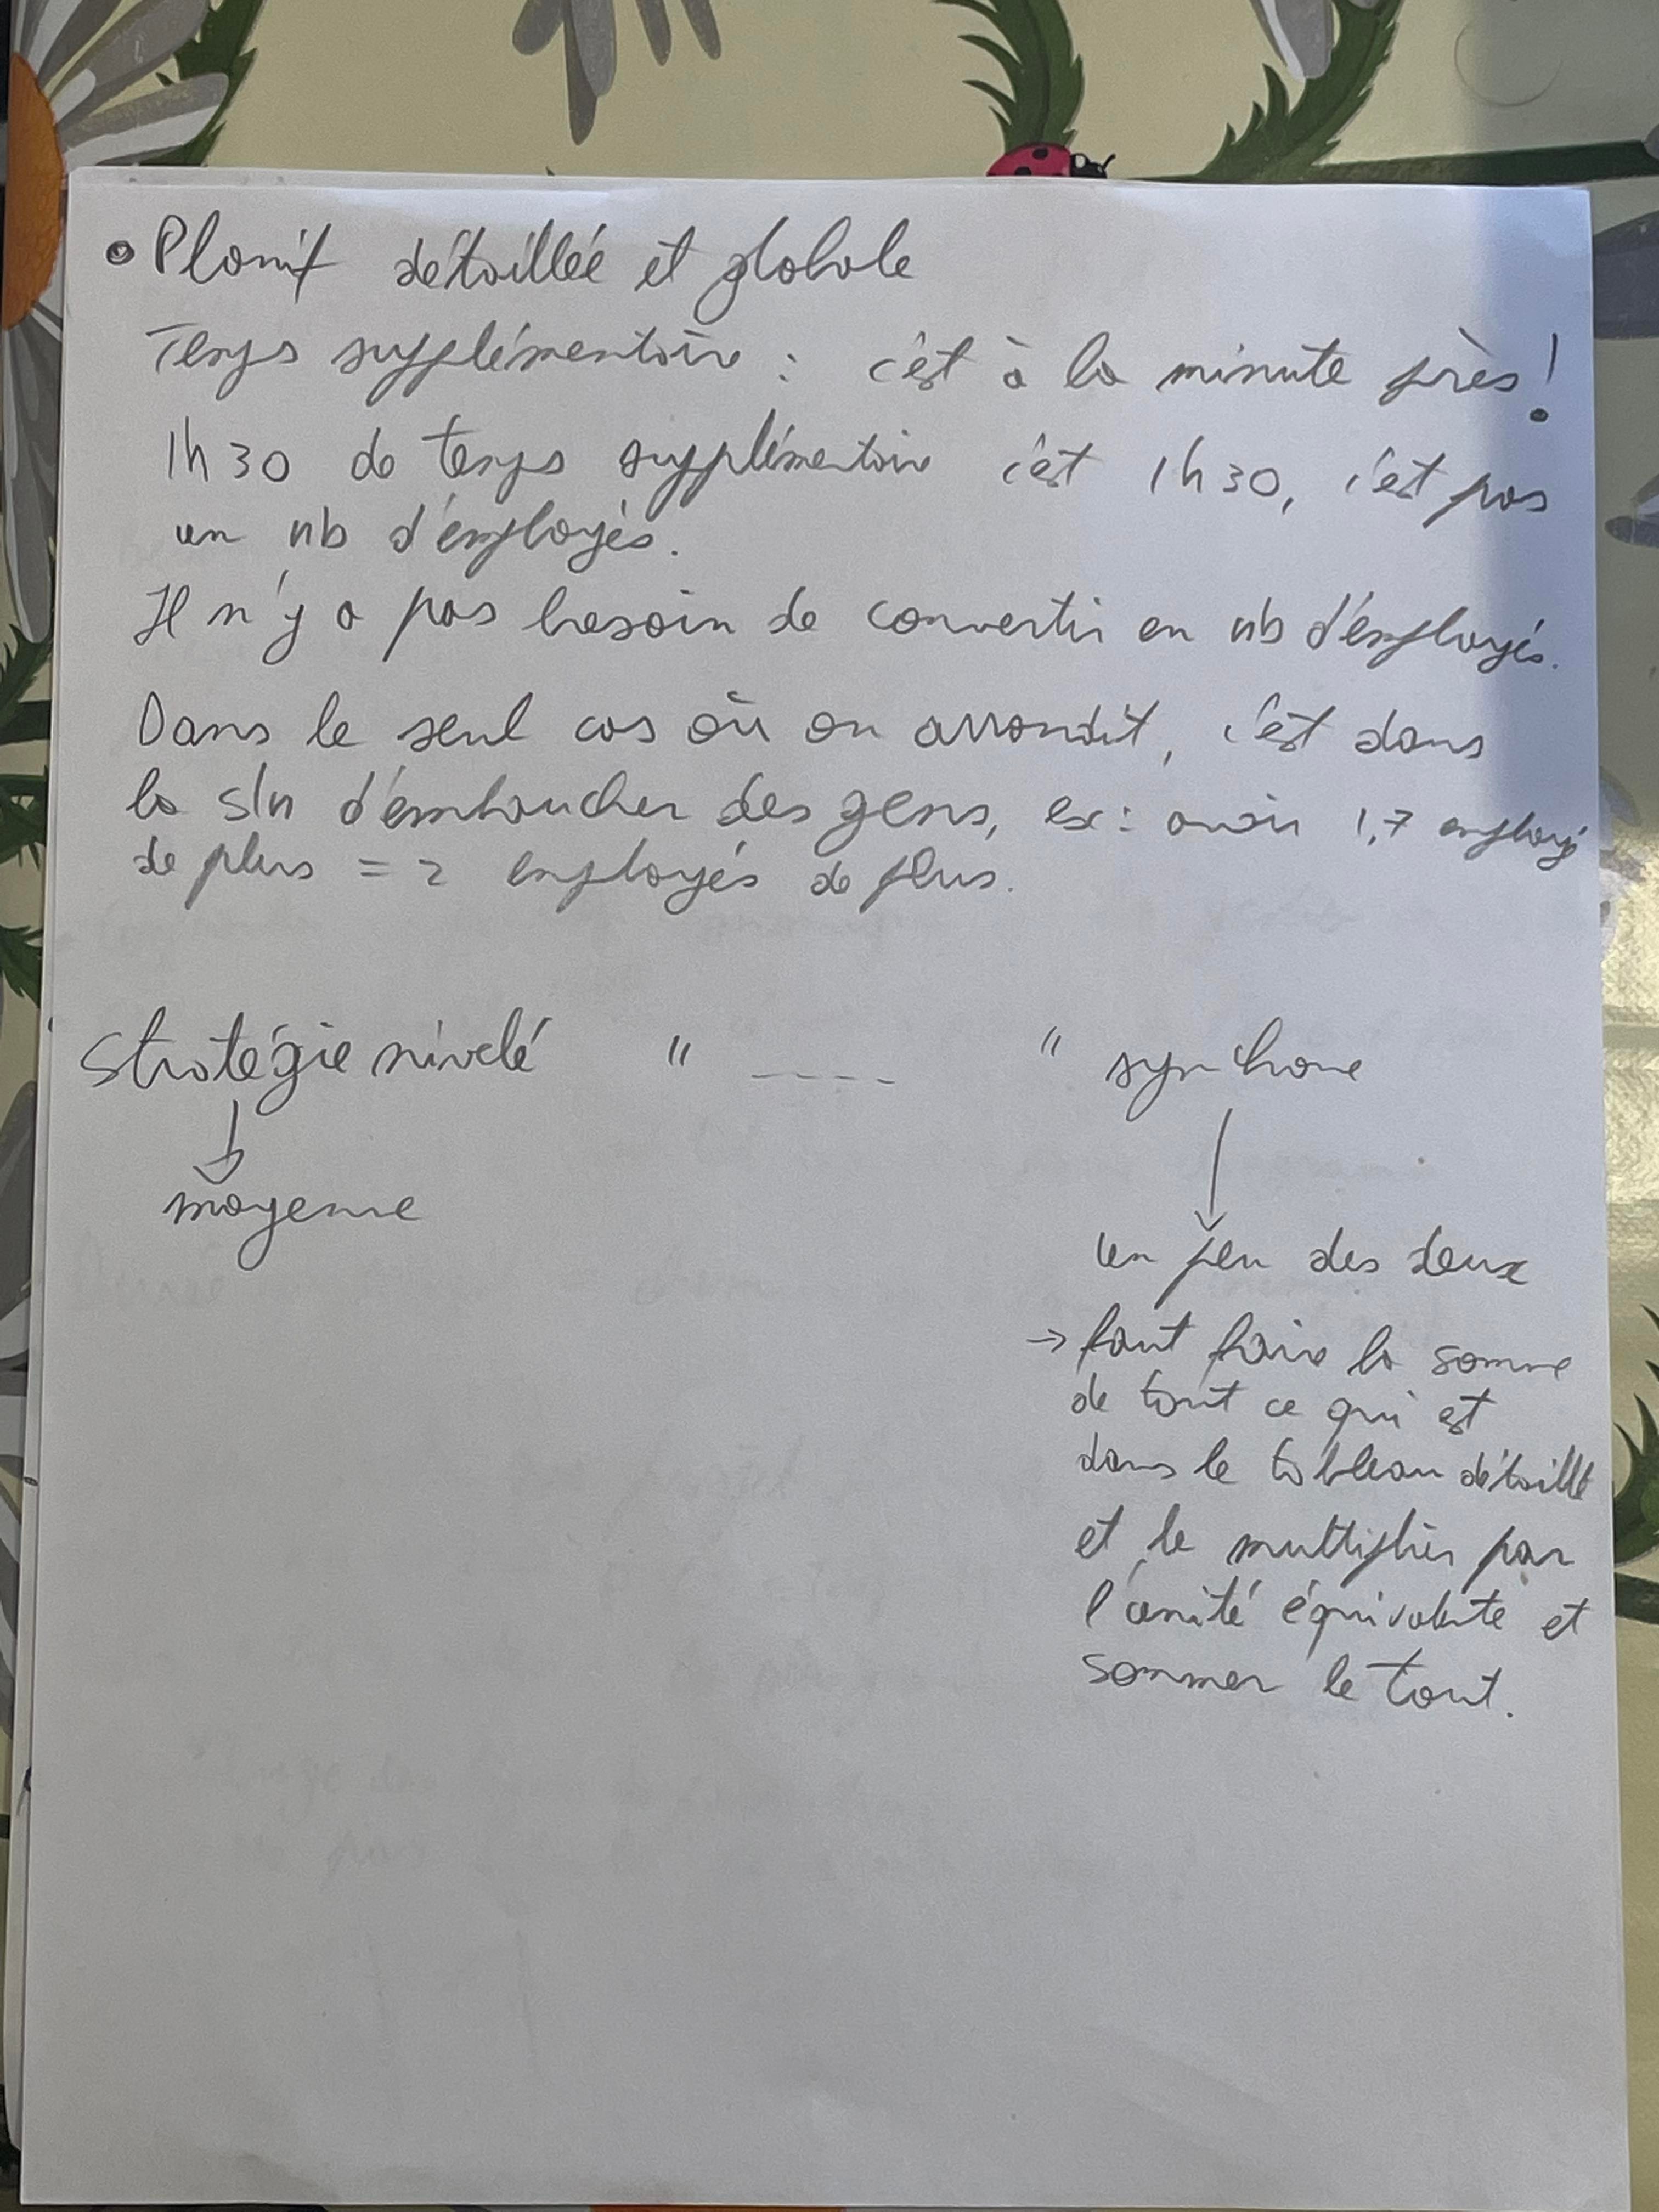 • Planif détaillée et globale
Temps supplémentaire : c'est à la minute près !
1h30 de temps supplémentaire c'est 1h30, c'est pas
un nb d'employés.
Il n'y a pas besoin de convertir en nb d'employés.
Dans le seul cas où on arrondit, c'est dans
la s/n d'embaucher des gens, ex : avoir 1,7 employé
de plus = 2 employés de plus.
Stratégie nivelé " ---- " synchone
↓ ↓
moyenne
un peu des deux
→ faut faire la somme
de tout ce qui est
dans le tableau détaillé
et le multiplier par
l'unité équivalente et
sommer le tout.